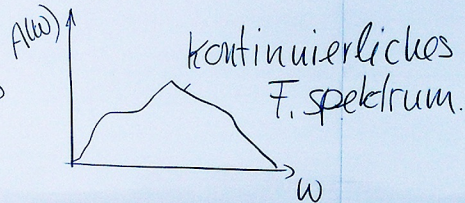 A(ω)
kontinuierliches
F. spektrum.
ω